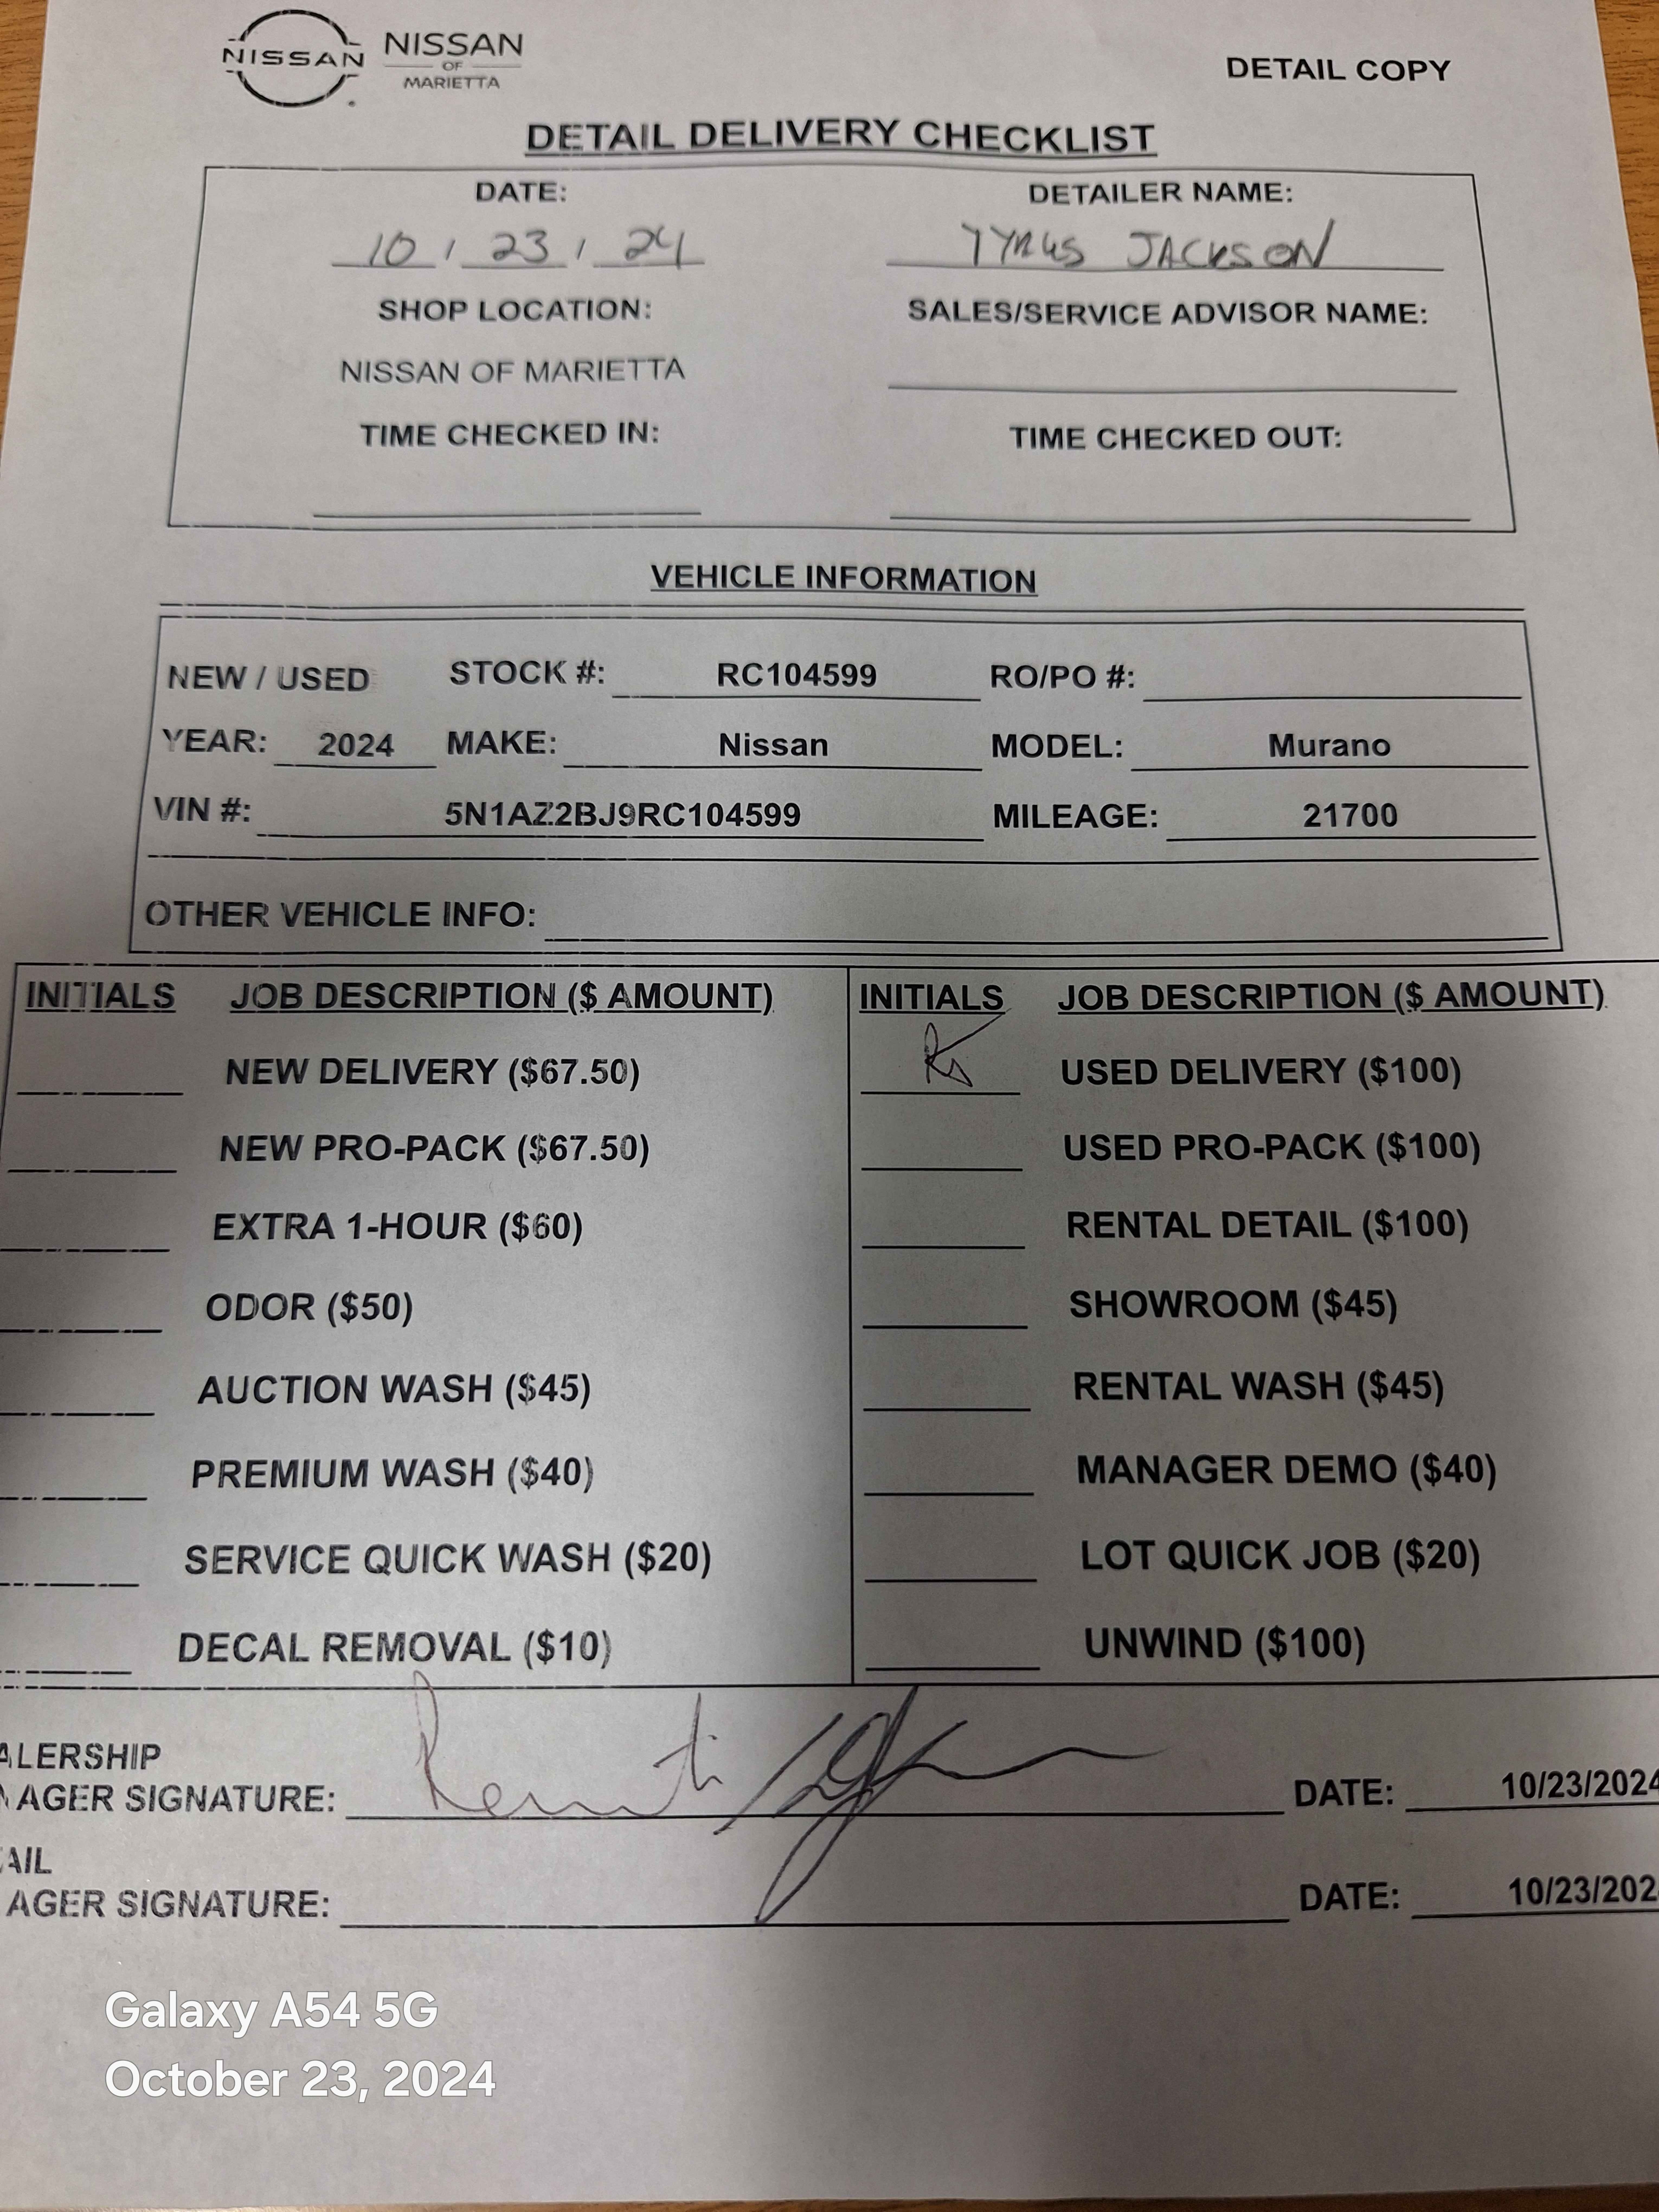 NISSAN NISSAN
OF
MARIETTA
DETAIL COPY
DETAIL DELIVERY CHECKLIST
DATE: DETAILER NAME:
10 / 23 / 24 TYRUS JACKSON
SHOP LOCATION: SALES/SERVICE ADVISOR NAME:
NISSAN OF MARIETTA
TIME CHECKED IN: TIME CHECKED OUT:
VEHICLE INFORMATION
NEW / USED STOCK #: RC104599 RO/PO #:
YEAR: 2024 MAKE: Nissan MODEL: Murano
VIN #: 5N1AZ2BJ9RC104599 MILEAGE: 21700
OTHER VEHICLE INFO:
INITIALS JOB DESCRIPTION ($ AMOUNT) INITIALS JOB DESCRIPTION ($ AMOUNT)
NEW DELIVERY ($67.50) USED DELIVERY ($100)
NEW PRO-PACK ($67.50) USED PRO-PACK ($100)
EXTRA 1-HOUR ($60) RENTAL DETAIL ($100)
ODOR ($50) SHOWROOM ($45)
AUCTION WASH ($45) RENTAL WASH ($45)
PREMIUM WASH ($40) MANAGER DEMO ($40)
SERVICE QUICK WASH ($20) LOT QUICK JOB ($20)
DECAL REMOVAL ($10) UNWIND ($100)
ALERSHIP
AGER SIGNATURE: DATE: 10/23/2024
AIL
AGER SIGNATURE: DATE: 10/23/202
Galaxy A54 5G
October 23, 2024